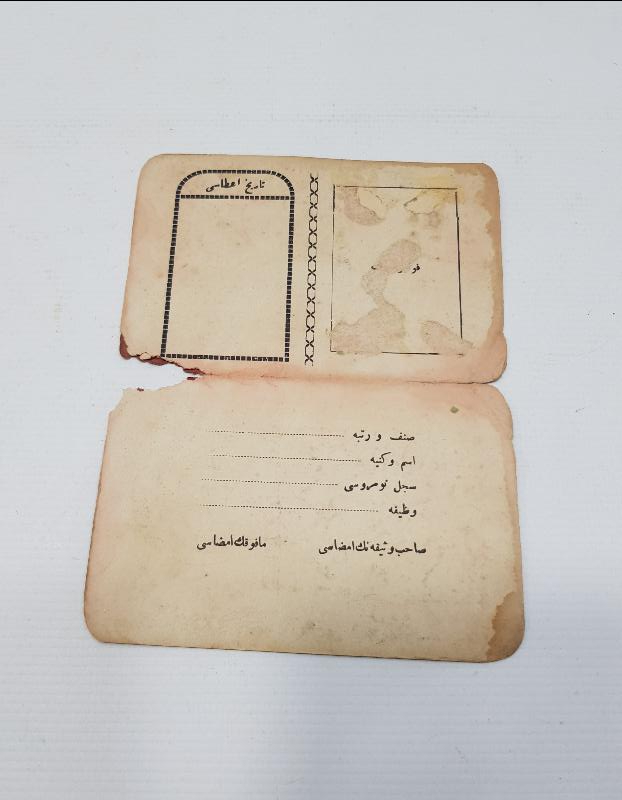 تاريخ اعطاسی
صنف و رتبه
اسم و کنیه
سجل نومروسی
وظیفه
صاحب وثیقه نك امضاسی
مافوقك امضاسی